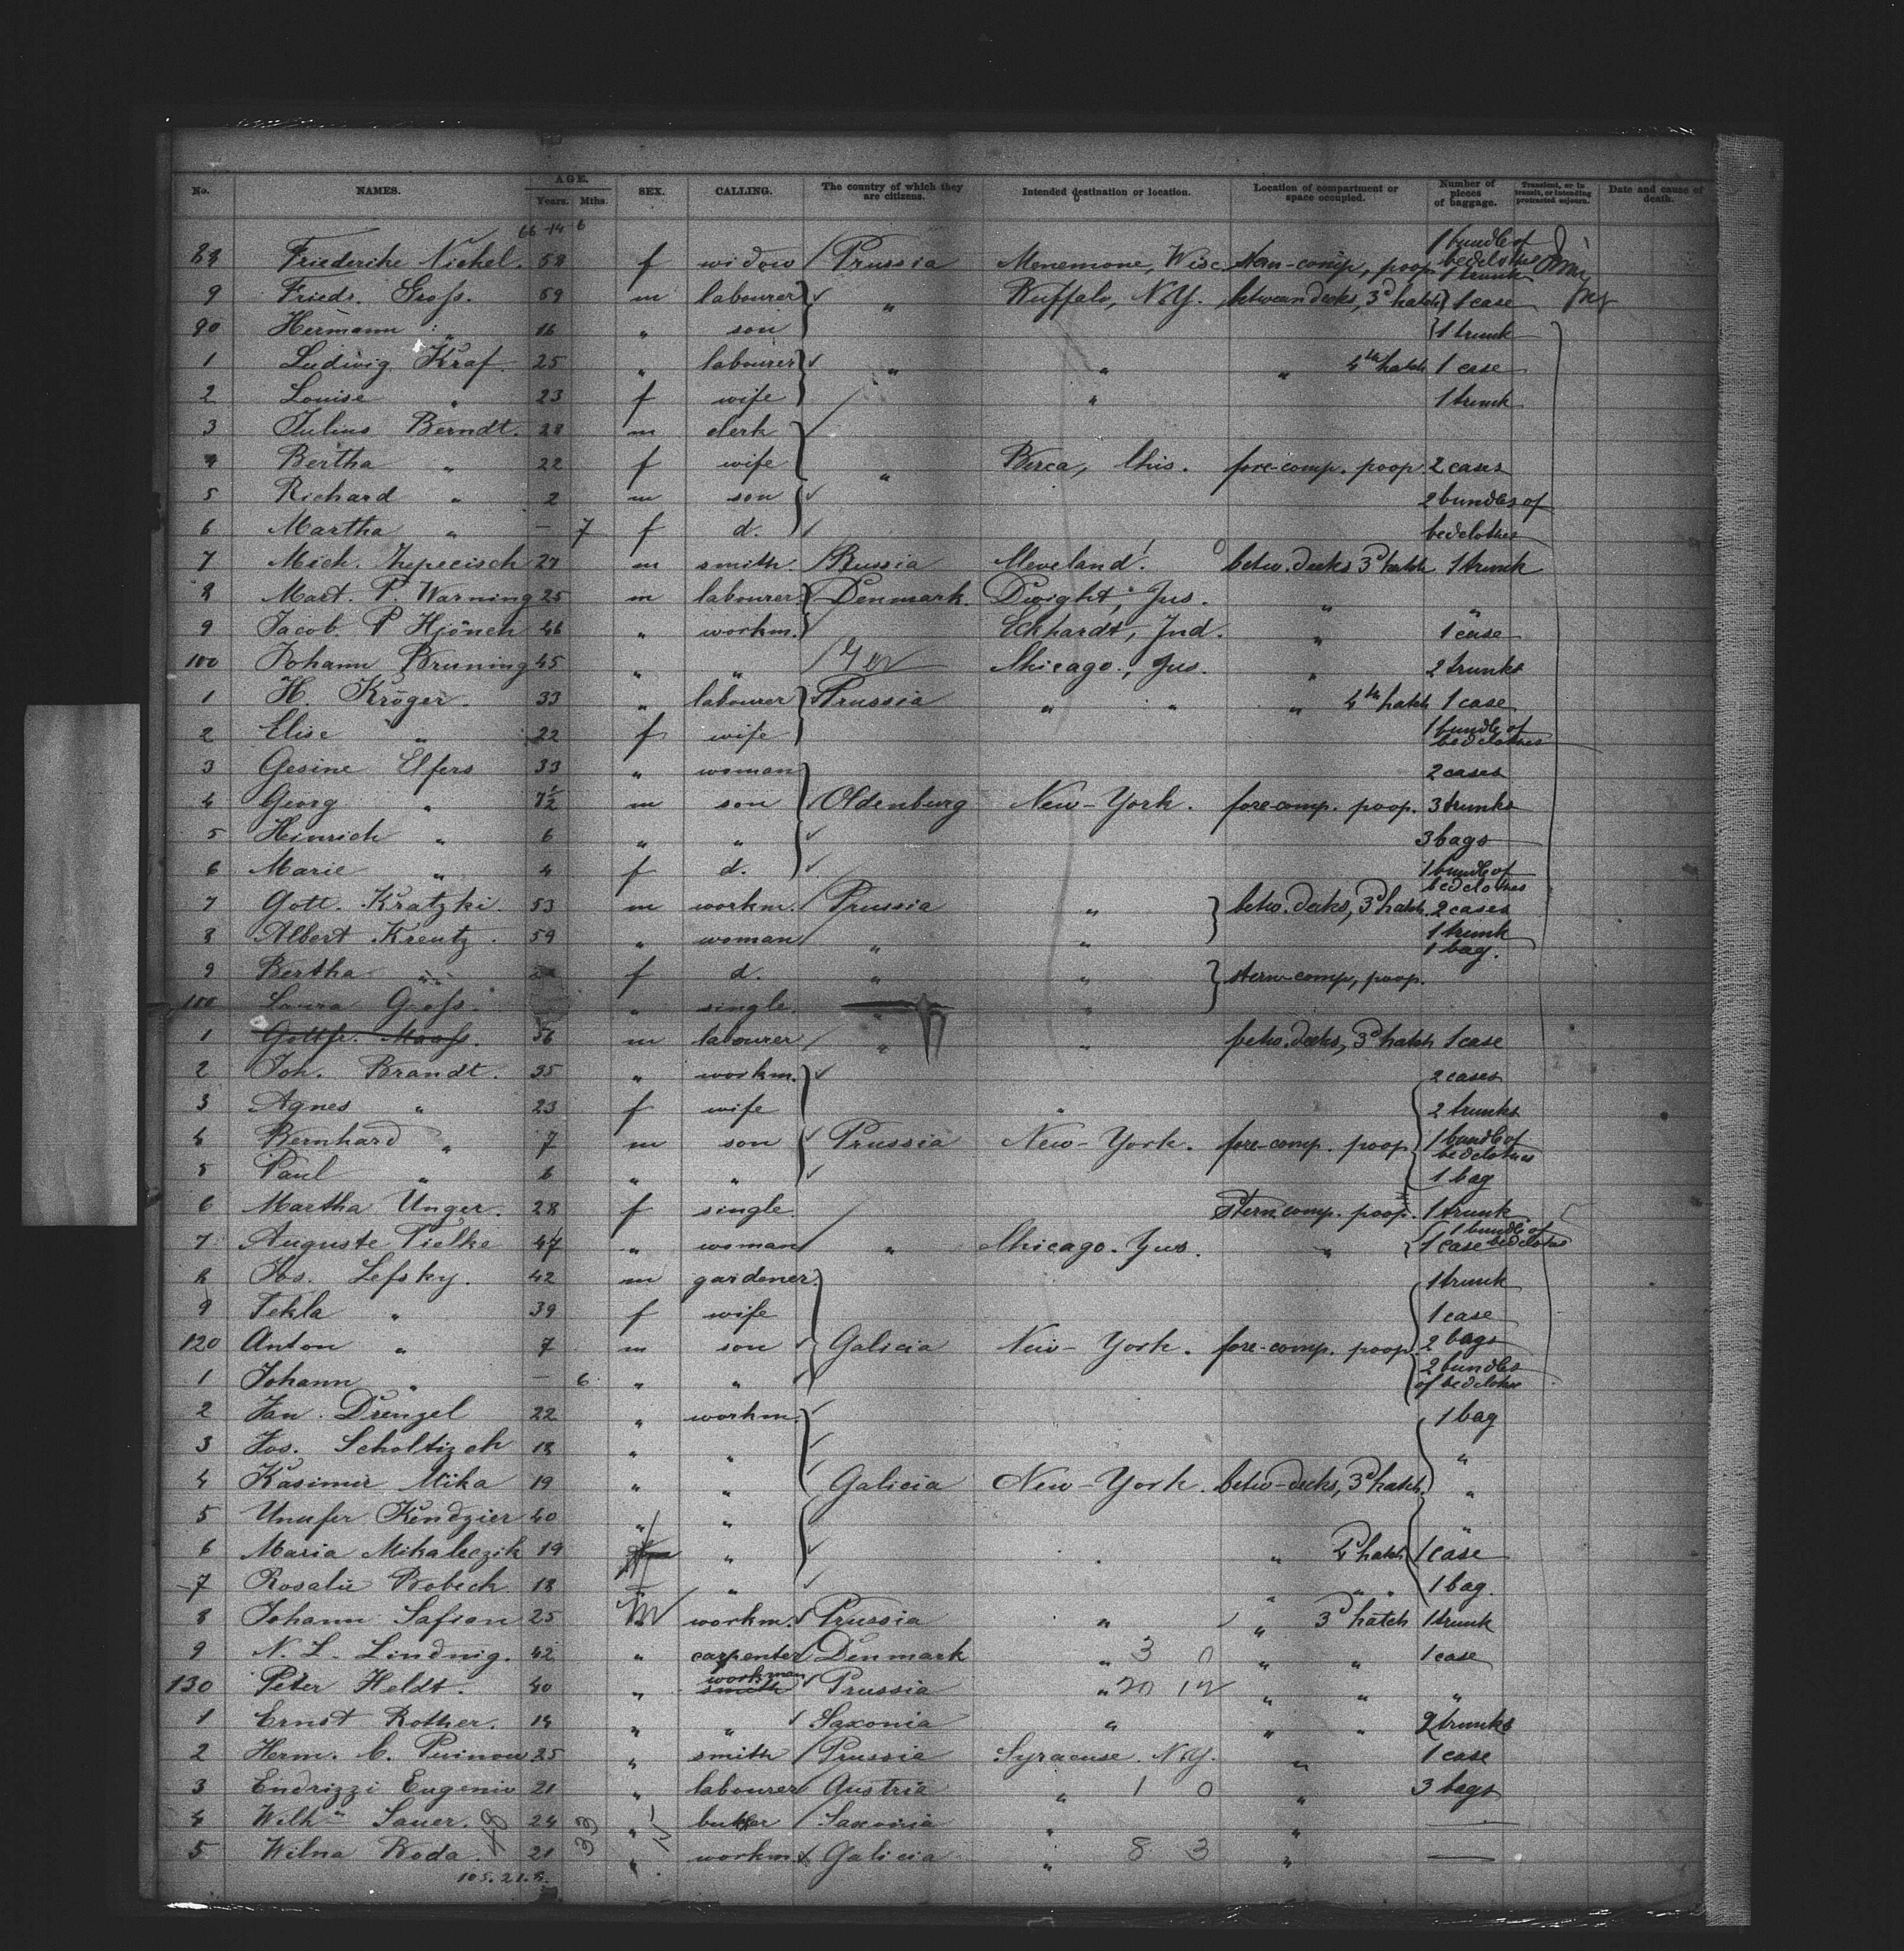 No. NAMES. AGE. Years. Mths. SEX. CALLING. The country of which they are citizens. Intended destination or location. Location of compartment or space occupied. Number of pieces of baggage. Transient, or in transit, or intending protracted sojourn. Date and cause of death.
66 14 6
88 Friederike Nickel. 58 f widow Prussia Menemone, Wisc. stern-comp, poop 1 bundle of bedclothes 1 trunk
9 Friedr. Groß. 59 m labourer " Buffalo, N.Y. between decks, 3d hatch 1 case
90 Hermann " 16 " son 1 trunk
1 Ludwig Kraf 25 " labourer " " " 4th hatch 1 case
2 Louise " 23 f wife " 1 trunk
3 Julius Berndt. 28 m clerk
4 Bertha " 22 f wife " Berea, Ohio. fore-comp. poop 2 cases
5 Richard " 2 m son 2 bundles of
6 Martha " — 7 f d. bedclothes
7 Mich. 27 m smith. Russia Cleveland betw. decks 3d hatch 1 trunk
8 Mart. P. Warning 25 m labourer Denmark. Dwight, Ill. " "
9 Jacob. P Hjönch 46 " workm. Eckhardt, Ind. " 1 case
100 Johann Bruning 45 " " Chicago, Ill. " 2 trunks
1 H. Kröger. 33 " labourer Prussia " " " 4th hatch 1 case
2 Elise " 22 f wife 1 bundle of bedclothes
3 Gesine Elfers 33 " woman 2 cases
4 Georg " 7½ m son Oldenburg New-York. fore-comp. poop. 3 trunks
5 Heinrich " 6 " " 3 bags
6 Marie " 4 f d. 1 bundle of bedclothes
7 Gott. Kratzki. 53 m workm. Prussia " betw. decks, 3d hatch 2 cases
8 Albert Kreutz. 59 " woman " " 1 trunk 1 bag.
9 Bertha " f d. " " stern-comp, poop.
100 Laura Groß. " single. "
1 Gottfr. Maaß. 56 m labourer " " betw. decks, 3d hatch 1 case
2 Joh. Brandt. 35 " workm. 2 cases
3 Agnes " 23 f wife " 2 trunks
4 Bernhard " 7 m son Prussia New-York. fore-comp. poop 1 bundle of bedclothes
5 Paul " 6 " " 1 bag
6 Martha Unger. 28 f single. Stern comp. poop. 1 trunk
7 Auguste Tielke 47 " woman " Chicago. Ill. " 1 case 1 bundle of bedclothes
8 Jos. Lefsky. 42 m gardener. 1 trunk
9 Tekla " 39 f wife 1 case
120 Anton " 7 m son Galicia New-York. fore-comp. poop. 2 bags
1 Johann " — 6 " " 2 bundles of bedclothes
2 Jan. Drenzel 22 " workm. 1 bag
3 Jos. Scholtizek 18 " " "
4 Kasimir Mika 19 " " Galicia New-York. betw-decks, 3d hatch. "
5 Unufer Kendzier 40 " " "
6 Maria Mikaleczik 19 " " 4 hatch 1 case
7 Rosalie Bobeck 18 " " " " 1 bag.
8 Johann Safian 25 m workm. Prussia " " 3d hatch 1 trunk
9 N. L. Lindnig. 42 " carpenter Denmark " 3 0 " " 1 case
130 Peter Heldt. 40 " smith workman Prussia " 20 12 " " "
1 Ernst Rother. 14 " " Saxonia " " " 2 trunks
2 Herm. C. Puinow 25 " smith Prussia Syracuse. N.Y. " 1 case
3 Endrizzi Eugenio 21 " labourer Austria " 1 0 " 3 bags
4 Wilhm Sauer. 24 " Saxonia " " —
5 Wilna Boda. 21 " workm. Galicia " 8 3 " —
105. 21. 8.